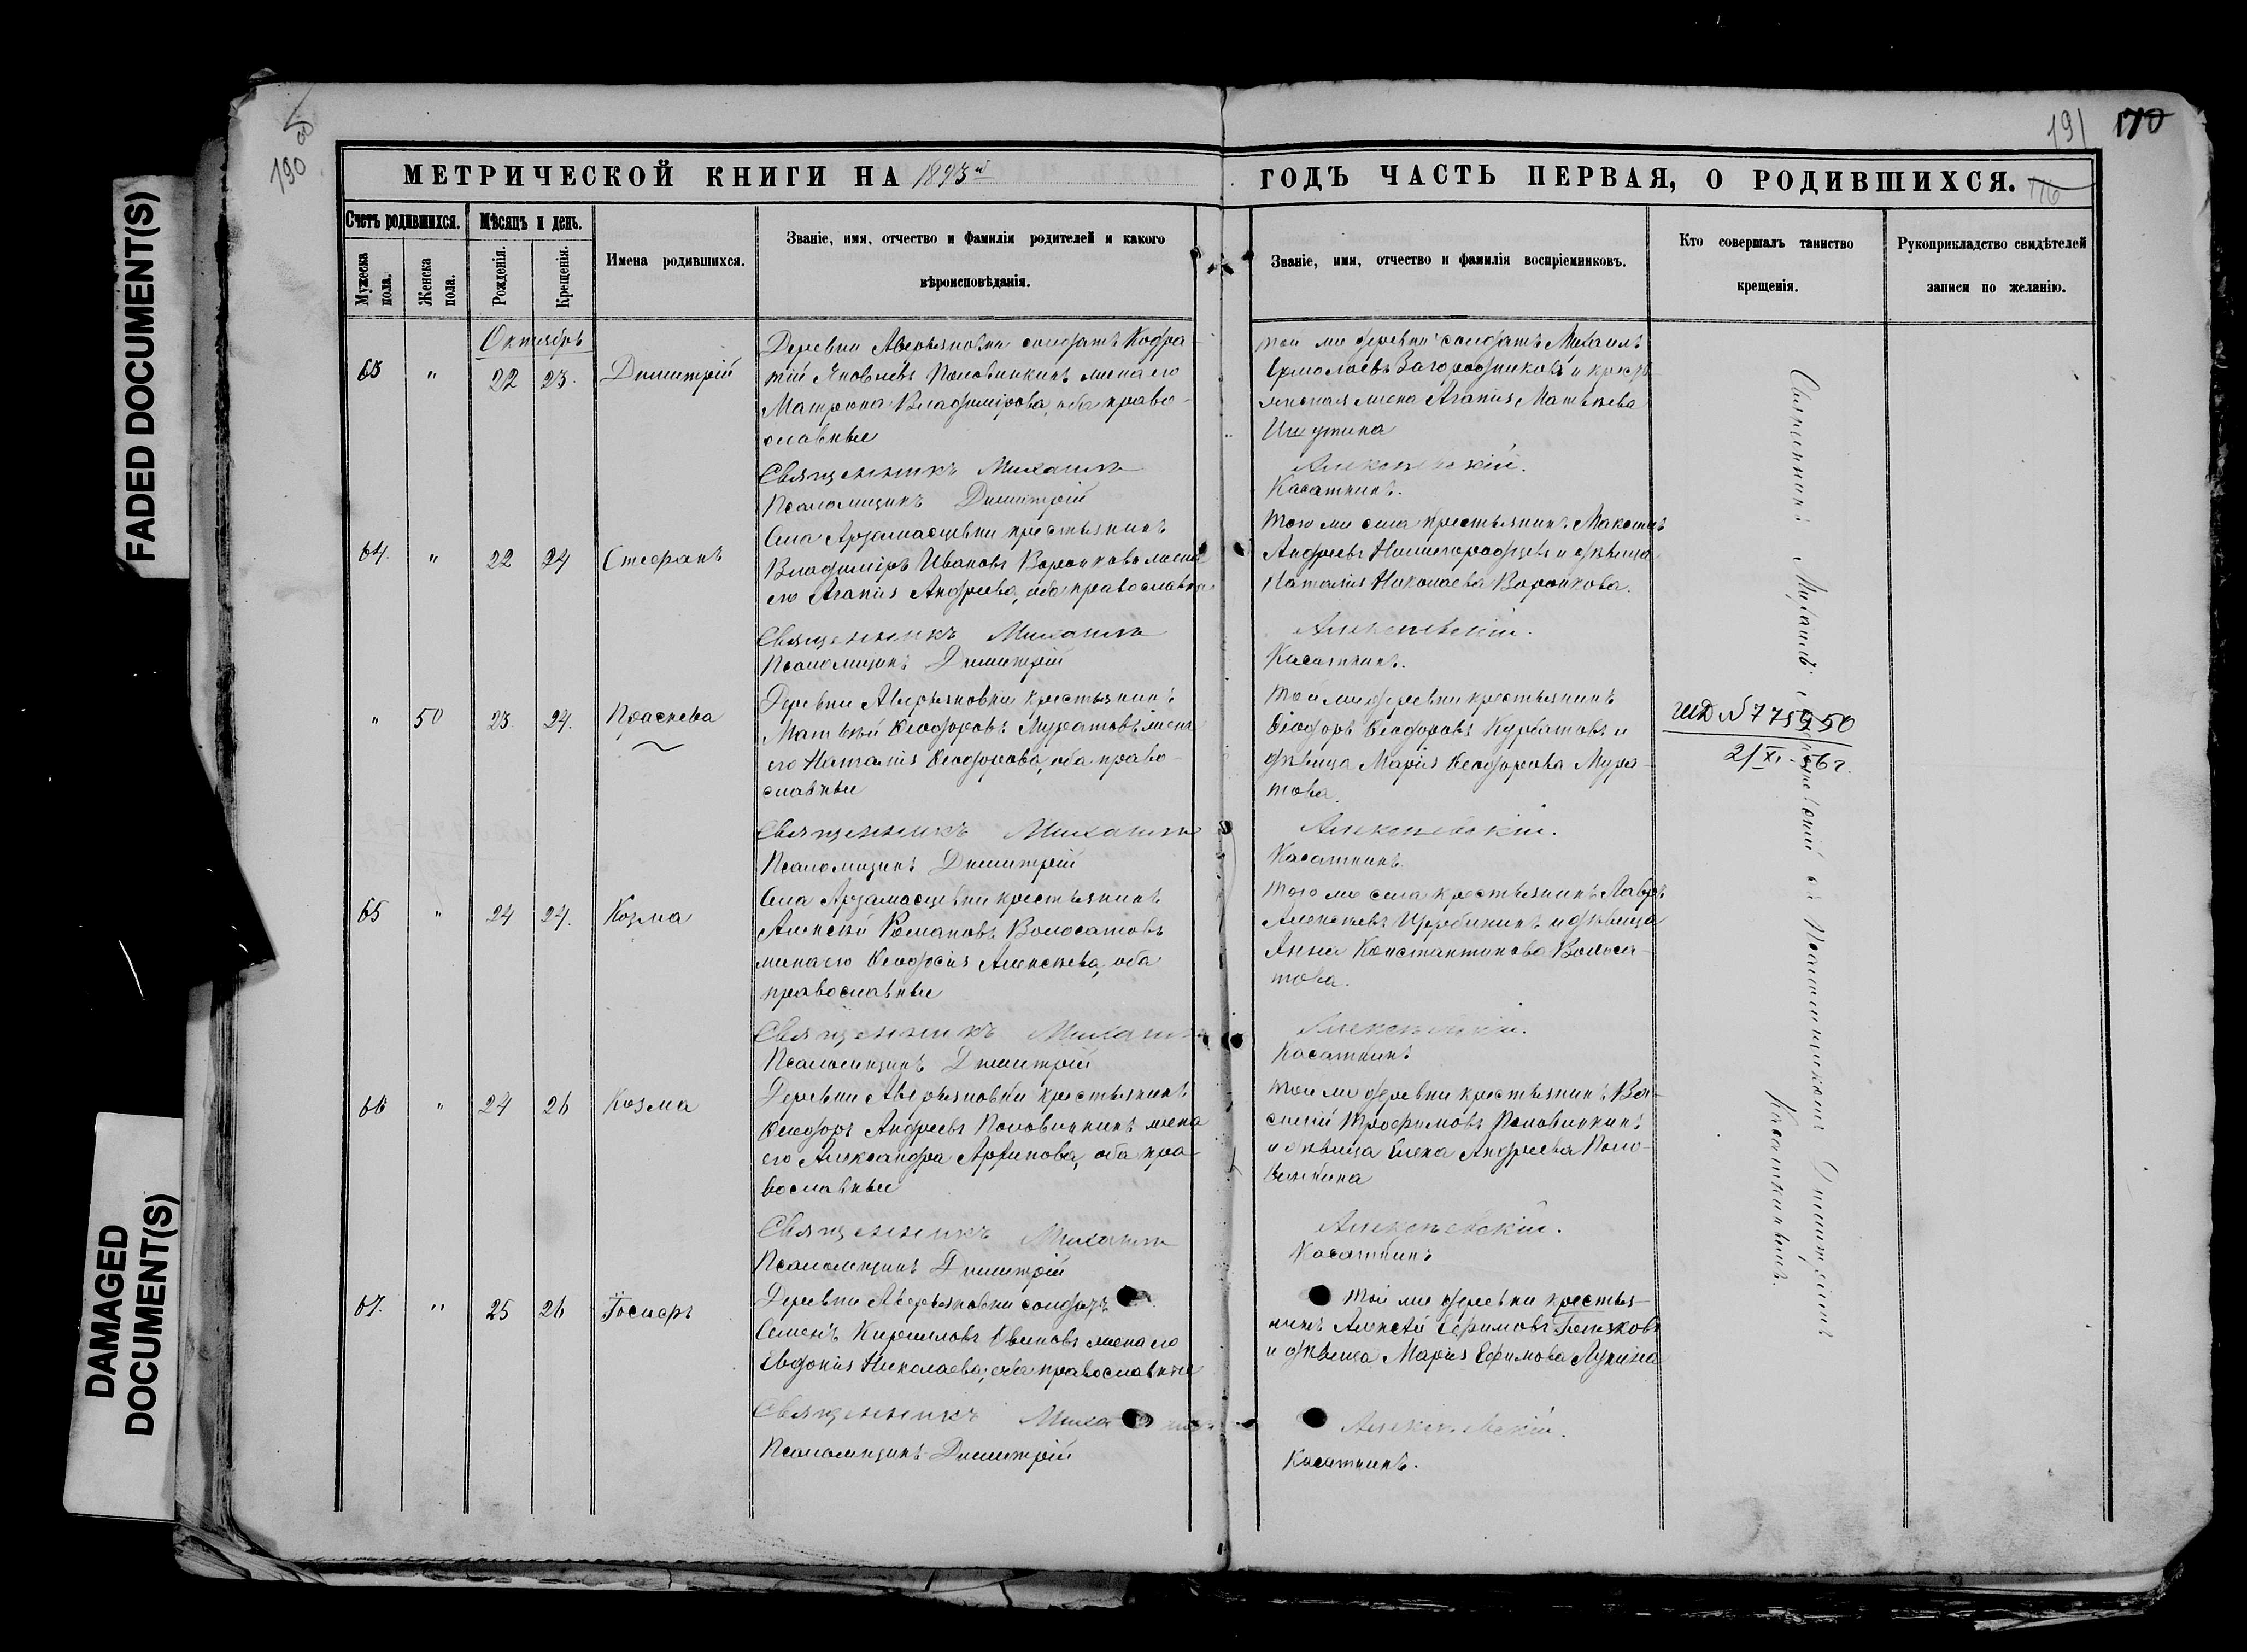 190
191
170
FADED DOCUMENT(S)
DAMAGED
DOCUMENT(S)
МЕТРИЧЕСКОЙ КНИГИ НА 1893й
ГОДЪ ЧАСТЬ ПЕРВАЯ, О РОДИВШИХСЯ.
Счетъ родившихся.
Мужеска пола.
Женска пола.
Мѣсяцъ и день.
Рожденія.
Крещенія.
Имена родившихся.
Званіе, имя, отчество и фамилія родителей и какого
вѣроисповѣданія.
Званіе, имя, отчество и фамилія воспріемниковъ.
Кто совершалъ таинство
крещенія.
Рукоприкладство свидѣтелей
записи по желанію.
Октябрь
63 " 22 23. Димитрій
Деревни Аверьяновки солдатъ Кодра-
тій Яковлевъ Половинкинъ жена его
Матрона Владимірова, оба право-
славные
той же деревни солдатъ Михаилъ
Ермолаевъ Загородниковъ и крестьянская жена Агапія Матвѣева
Священникъ Михаилъ Алексѣевскій.
Псаломщикъ Димитрій Касаткинъ.
64. " 22 24 Стефанъ
Села Арзамасцевки крестьянинъ
Владиміръ Ивановъ Воронковъ жена
его Агапія Андреева, оба православные
того же села крестьянинъ Максимъ
Андреевъ Нижегородцевъ и дѣвица
Наталія Николаева Воронкова.
Священникъ Михаилъ Алексѣевскій.
Псаломщикъ Димитрій Касаткинъ.
" 50 23. 24. Праскева
Деревни Аверьяновки крестьянинъ
Матвѣй Ѳеодоровъ Муратовъ жена
его Наталія Ѳеодорова, оба право-
славные
той же деревни крестьянинъ
Ѳеодоръ Ѳеодоровъ Курбатовъ и
дѣвица Марія Ѳеодорова Мура-
това.
№ 775950
21/XI-56г.
Священникъ Михаилъ Алексѣевскій.
Псаломщикъ Димитрій Касаткинъ.
65 " 24 24. Козма
Села Арзамасцевки крестьянинъ
Алексѣй Романовъ Волосатовъ
жена его Ѳеодосія Алексѣева, оба
православные
того же села крестьянинъ Лавръ
Алексѣевъ Щербининъ и дѣвица
Анна Константинова Волоса-
това.
Священникъ Михаилъ Алексѣевскій.
Псаломщикъ Димитрій Касаткинъ
66 " 24 26 Козма
Деревни Аверьяновки крестьянинъ
Ѳеодоръ Андреевъ Половинкинъ жена
его Александра Архипова, оба пра-
вославные
той же деревни крестьянинъ Ва-
силій Трофимовъ Половинкинъ
и дѣвица Елена Андреева Поло-
винкина
Священникъ Михаилъ Алексѣевскій.
Псаломщикъ Димитрій Касаткинъ
67. " 25 26
Деревни Аверьяновки солдатъ
Семенъ Кирилловъ жена его
Евдокія Николаева, оба православные
той же деревни крестья-
нинъ Алексѣй Ефимовъ
и дѣвица Марія Ефимова Лукина
Священникъ Михаилъ Алексѣевскій.
Псаломщикъ Димитрій Касаткинъ.
Священникъ Михаилъ Алексѣевскій съ Псаломщикомъ Димитріемъ
Касаткинымъ.